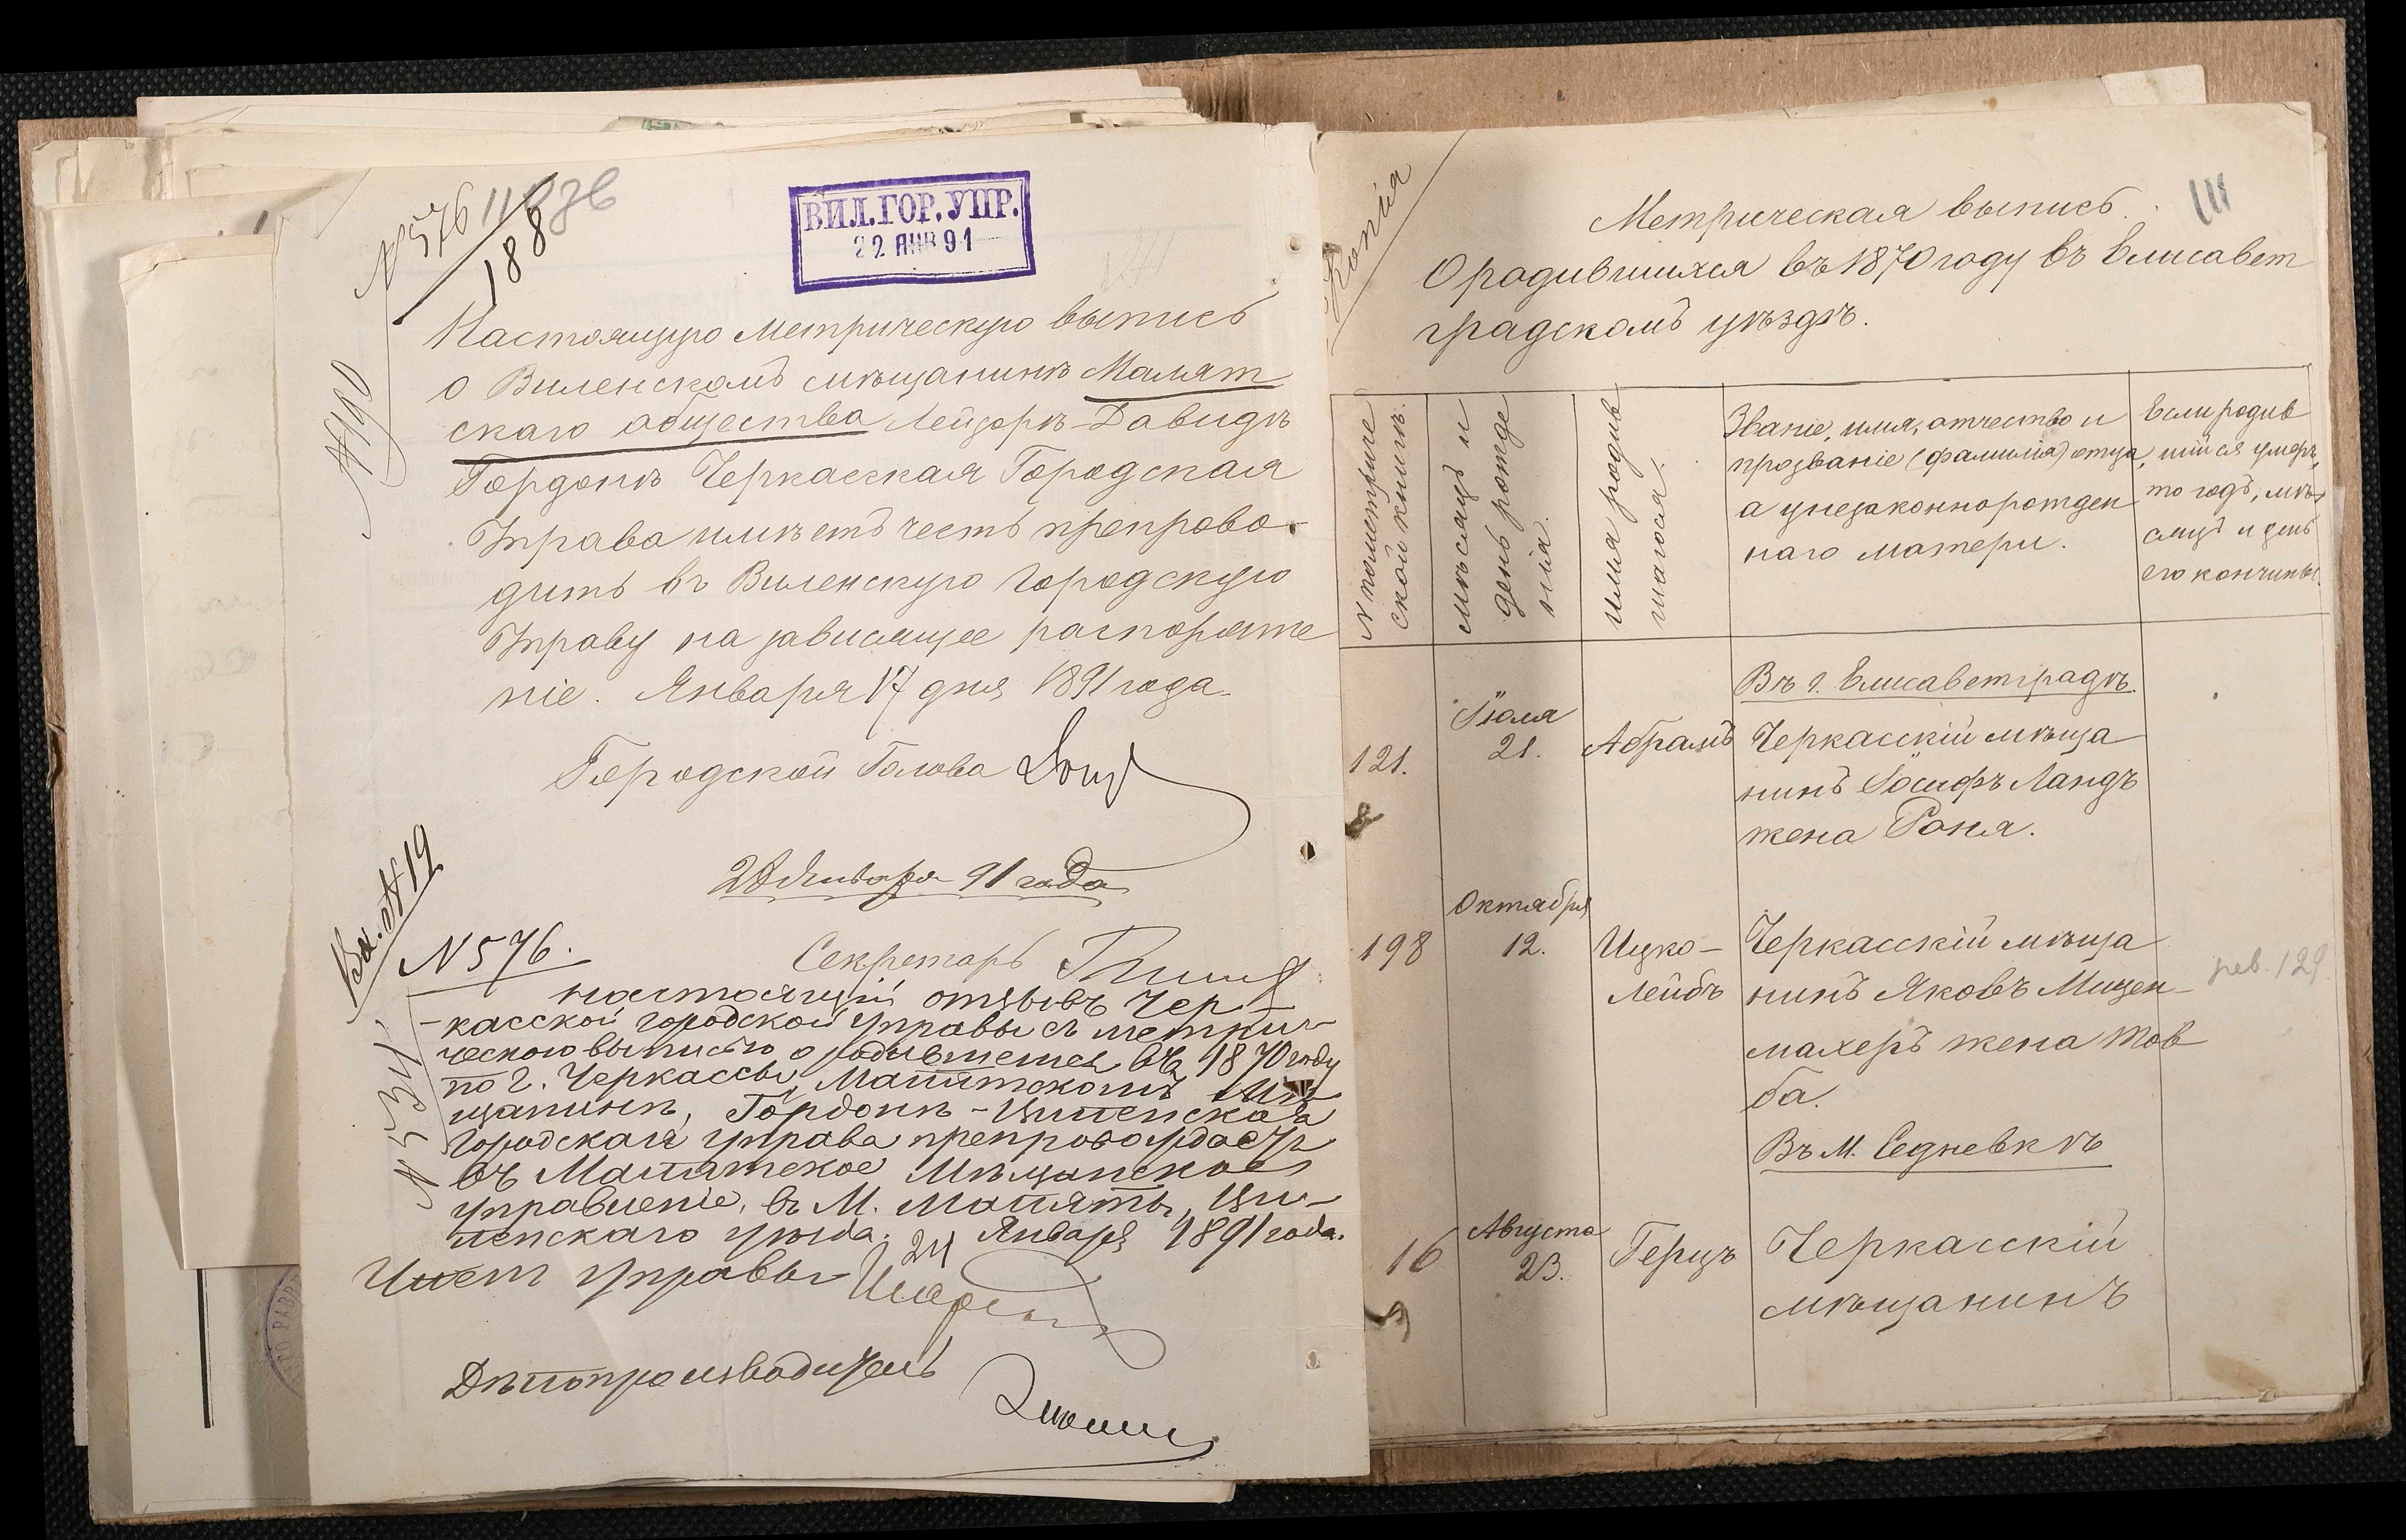 N 576
188
ВИЛ.ГОР.УПР.
22 ЯНВ 91
Настоящую метрическую выпись
о Виленскомъ мѣщанинѣ Малят
скаго общества Лейзорѣ-Давидѣ
Гордонѣ Черкасская Городская
Управа имѣетъ честь препрово-
дить въ Виленскую Городскую
Управу на зависящее распоряже
ніе. Января 17 дня 1891 года.
Городской Голова
28 Января 91 года
Вх. № 19
N 576.
Секретарь
Настоящій отзывъ Чер-
-касской городской управы съ метри-
ческою выписью о родившемся въ 1870 году
по г. Черкассы, Малятскомъ мѣ-
щанинѣ, Гордонѣ - Виленская
Городская управа препровождаетъ
въ Малятское Мѣщанское
управленіе, въ М. Маляты, Ви-
ленскаго уѣзда. Января 24 1891 года.
Членъ управы
Дѣлопроизводитель
№ 190
№ 531
Копія
111
Метрическая выпись.
О родившихся въ 1870 году въ Елисавет
градскомъ уѣздѣ.
N по метриче
ской книгѣ.
Мѣсяцъ и
день рожде
нія.
Имя родив
шагося.
Званіе, имя, отчество и
прозваніе (фамилія) отца,
а у незаконнорожден
наго матери.
Если родив
шійся умеръ,
то годъ, мѣ-
сяцъ и день
его кончины.
Въ г. Елисаветградѣ.
121.
Іюля
21.
Абрамъ
Черкасскій мѣща
нинъ Іосифъ Ландъ
жена Раня.
198
Октября
12.
Ицко-
Лейбъ
Черкасскій мѣща
нинъ Яковъ Мищен-
махеръ жена Тов
ба.
рев. 129.
Въ М. Седневкѣ
16
Августа
23.
Герцъ
Черкасскій
мѣщанинъ